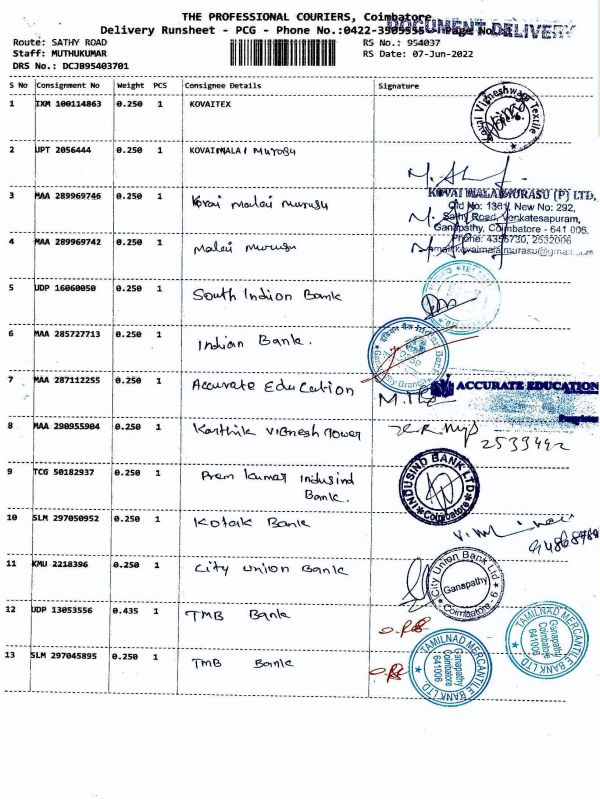 THE PROFESSIONAL COURIERS, Coimbatore
Delivery Runsheet - PCG - Phone No.:0422-3505555 - Page No.
DOCUMENT DELIVERY
Route: SATHY ROAD RS No.: 954037
Staff: MUTHUKUMAR RS Date: 07-Jun-2022
DRS No.: DCJB95403701
S No Consignment No Weight PCS Consignee Details Signature
1 IXM 100114863 0.250 1 KOVAITEX
Kovai Vigneshwara Textile
2 UPT 2056444 0.250 1 KOVAIMALAI Murasu
3 MAA 289969746 0.250 1 Kovai malai murasu
KOVAI MALAI MURASU (P) LTD,
Old No: 1361, New No: 292,
Sathy Road, Venkatesapuram,
Ganapathy, Coimbatore - 641 006.
4 MAA 289969742 0.250 1 Malai murasu
5 UDP 16060050 0.250 1 South Indian Bank
6 MAA 285727713 0.250 1 Indian Bank.
7 MAA 287112255 0.250 1 Accurate Education
ACCURATE EDUCATION
8 MAA 290955904 0.250 1 Karthik Vignesh Tower
2539442
9 TCG 50182937 0.250 1 Prem Kumar Indusind
Bank.
INDUSIND BANK LTD
Coimbatore
10 SLM 297050952 0.250 1 Kotak Bank
11 KMU 2218396 0.250 1 City union Bank
City Union Bank Ltd
Ganapathy
Coimbatore
12 UDP 13053556 0.435 1 TMB Bank
TAMILNAD MERCANTILE BANK LTD
Ganapathy
Coimbatore
641006
13 SLM 297045895 0.250 1 TMB Bank
TAMILNAD MERCANTILE BANK LTD.
Ganapathy
Coimbatore
641006